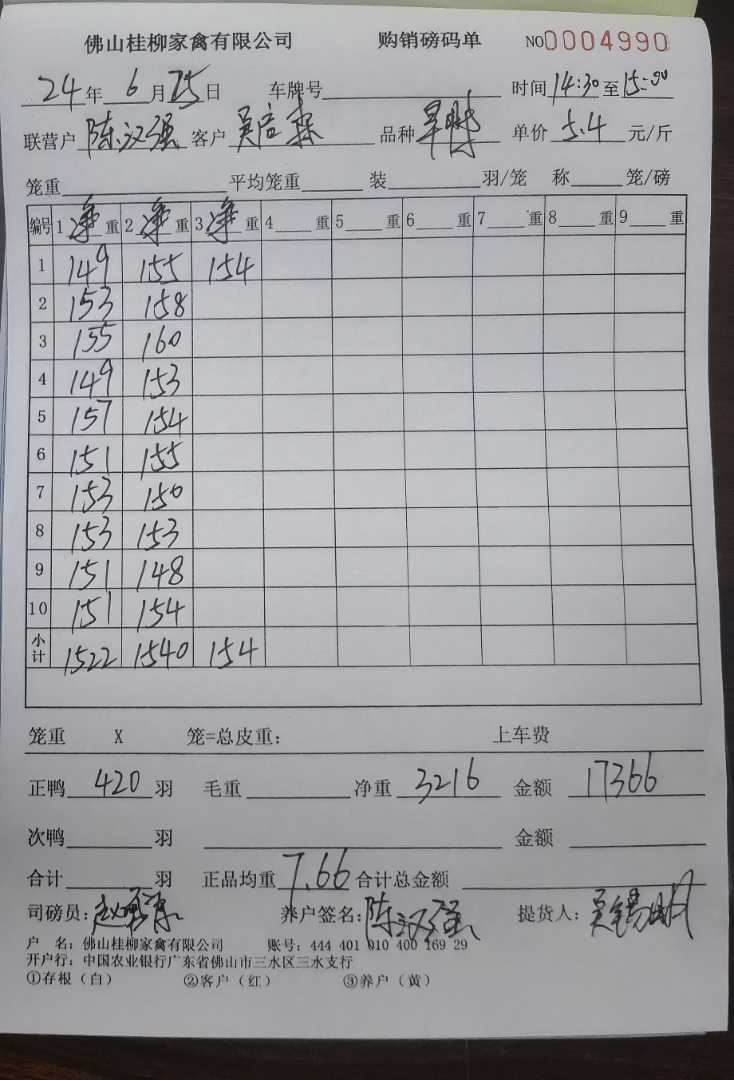 佛山桂柳家禽有限公司 购销磅码单 NO0004990
24年 6月25日 车牌号 时间14:30至15:00
联营户 陈汉强 客户 品种 单价 5.4 元/斤
笼重 平均笼重 装 羽/笼 称 笼/磅
编号 1 净 重 2 净 重 3 净 重 4 重 5 重 6 重 7 重 8 重 9 重
1 149 155 154
2 153 158
3 155 160
4 149 153
5 157 154
6 151 155
7 153 150
8 153 153
9 151 148
10 151 154
小计 1522 1540 154
笼重 X 笼=总皮重: 上车费
正鸭 420 羽 毛重 净重 3216 金额 17366
次鸭 羽 金额
合计 羽 正品均重 7.66 合计总金额
司磅员: 养户签名:陈汉强 提货人: 吴锡明
户 名: 佛山桂柳家禽有限公司 账号: 444 401 010 400 169 29
开户行: 中国农业银行广东省佛山市三水区三水支行
①存根(白) ②客户(红) ③养户(黄)